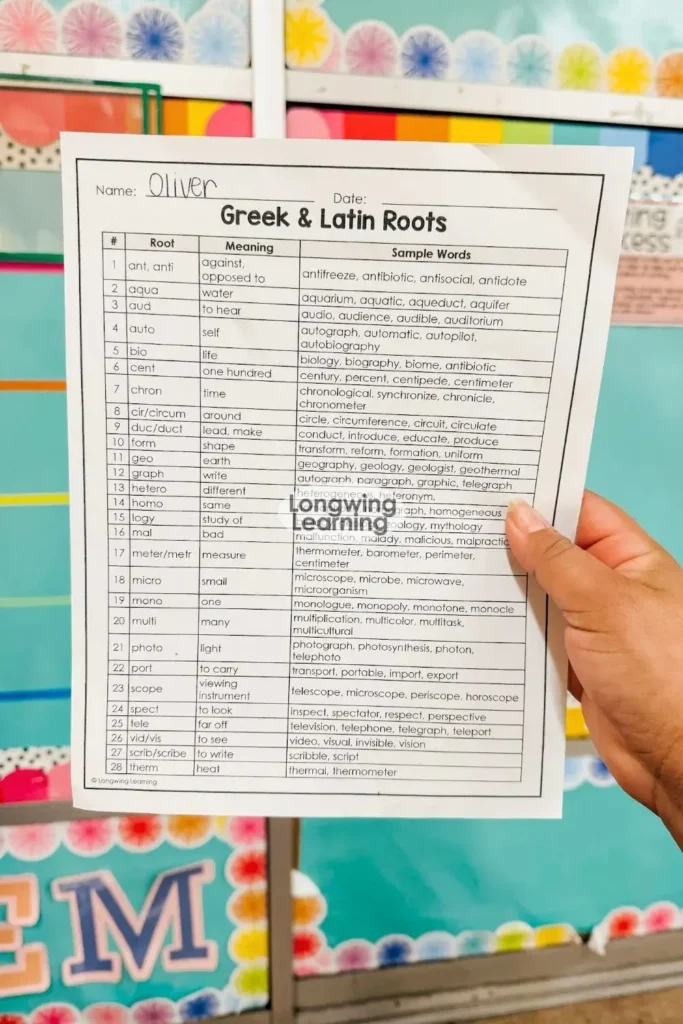 Name: Oliver Date:
Greek & Latin Roots
# Root Meaning Sample Words
1 ant, anti against, opposed to antifreeze, antibiotic, antisocial, antidote
2 aqua water aquarium, aquatic, aqueduct, aquifer
3 aud to hear audio, audience, audible, auditorium
4 auto self autograph, automatic, autopilot,
autobiography
5 bio life biology, biography, biome, antibiotic
6 cent one hundred century, percent, centipede, centimeter
7 chron time chronological, synchronize, chronicle,
chronometer
8 cir/circum around circle, circumference, circuit, circulate
9 duc/duct lead, make conduct, introduce, educate, produce
10 form shape transform, reform, formation, uniform
11 geo earth geography, geology, geologist, geothermal
12 graph write autograph, paragraph, graphic, telegraph
13 hetero different heterogeneous, heteronym,
14 homo same homogeneous
15 logy study of mythology
16 mal bad malfunction, malady, malicious, malpractic
17 meter/metr measure thermometer, barometer, perimeter,
centimeter
18 micro small microscope, microbe, microwave,
microorganism
19 mono one monologue, monopoly, monotone, monocle
20 multi many multiplication, multicolor, multitask,
multicultural
21 photo light photograph, photosynthesis, photon,
telephoto
22 port to carry transport, portable, import, export
23 scope viewing instrument telescope, microscope, periscope, horoscope
24 spect to look inspect, spectator, respect, perspective
25 tele far off television, telephone, telegraph, teleport
26 vid/vis to see video, visual, invisible, vision
27 scrib/scribe to write scribble, script
28 therm heat thermal, thermometer
© Longwing Learning
Longwing
Learning
EM